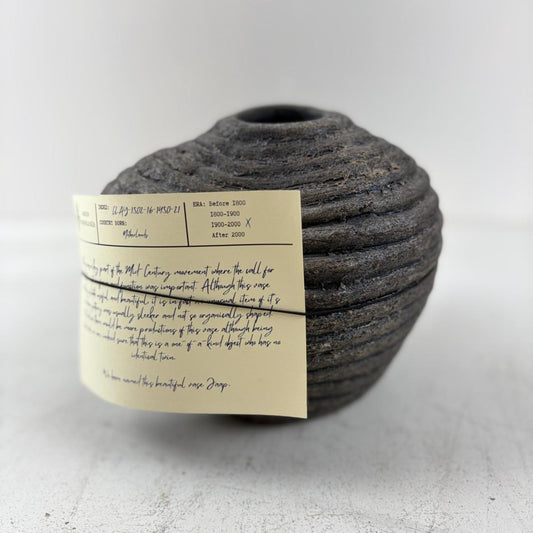 INDEX: CL-AJ-1502-16-1950-21
COUNTRY BORN:
Netherlands
ERA: Before 1800
1800-1900
1900-2000 X
After 2000
part of the Mid-Century movement where the call for
was important. Although this vase
and beautiful it is in fact an unusual item of it's
was usually sleeker and not so organically shaped.
could be more productions of this vase although being
indeed sure that this is a one-of-a-kind object who has no
identical twin.
We have named this beautiful vase Jaap.